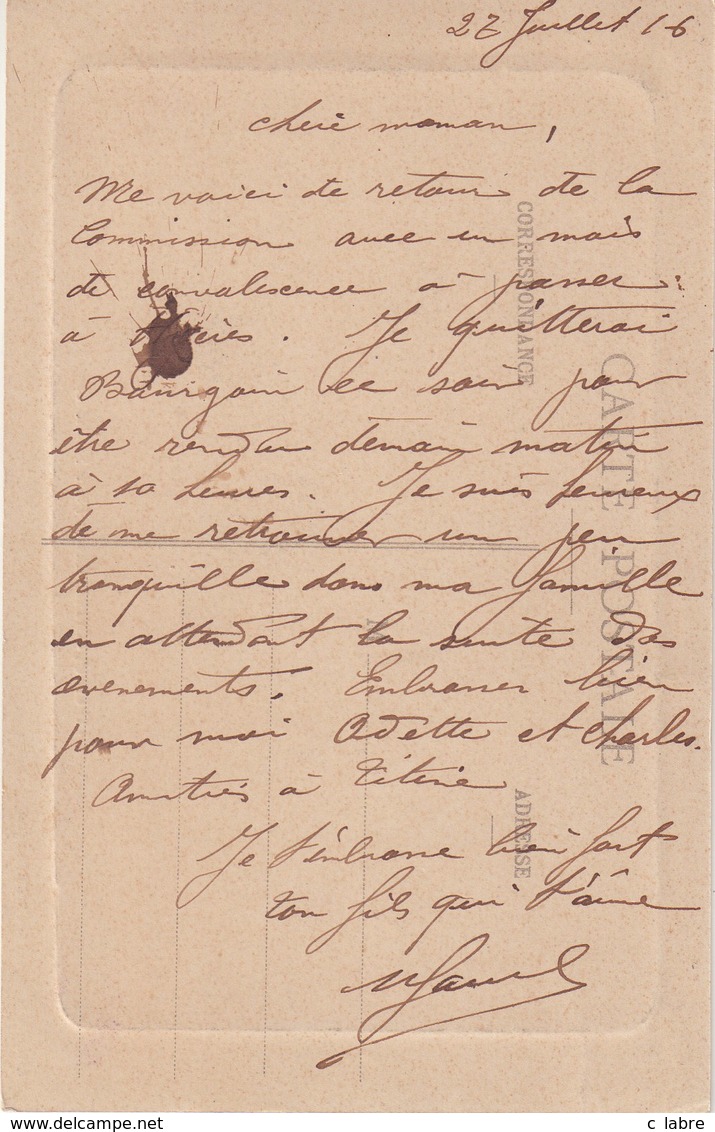 27 Juillet 16
chère maman,
Me voici de retour de la
Commission avec un mois
de convalescence à passer
à . Je quitterai
Bourgoin ce soir pour
être rendu demain matin
à 10 heures. Je suis heureux
de me retrouver un peu
tranquille dans ma famille
en attendant la suite des
evenements. Embrasser bien
pour moi Odette et Charles.
Amitiés à Titine
Je t'embrasse bien fort
ton fils qui t'aime
CORRESPONDANCE
CARTE POSTALE
ADRESSE
c labre